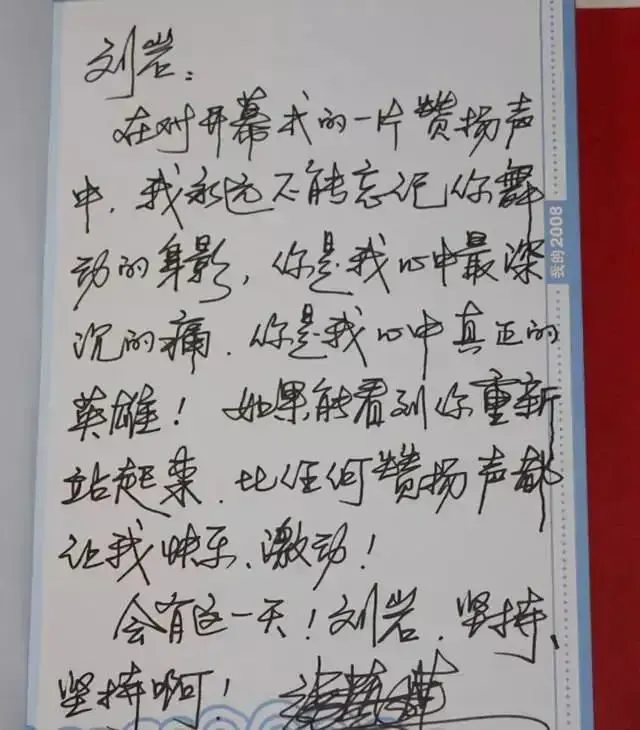 刘岩：
在对开幕式的一片赞扬声
中，我永远不能忘记你舞
动的身影，你是我心中最深
沉的痛，你是我心中真正的
英雄！如果能看到你重新
站起来，比任何赞扬声都
让我快乐、激动！
会有这一天！刘岩，坚持、
坚持啊！
我的2008